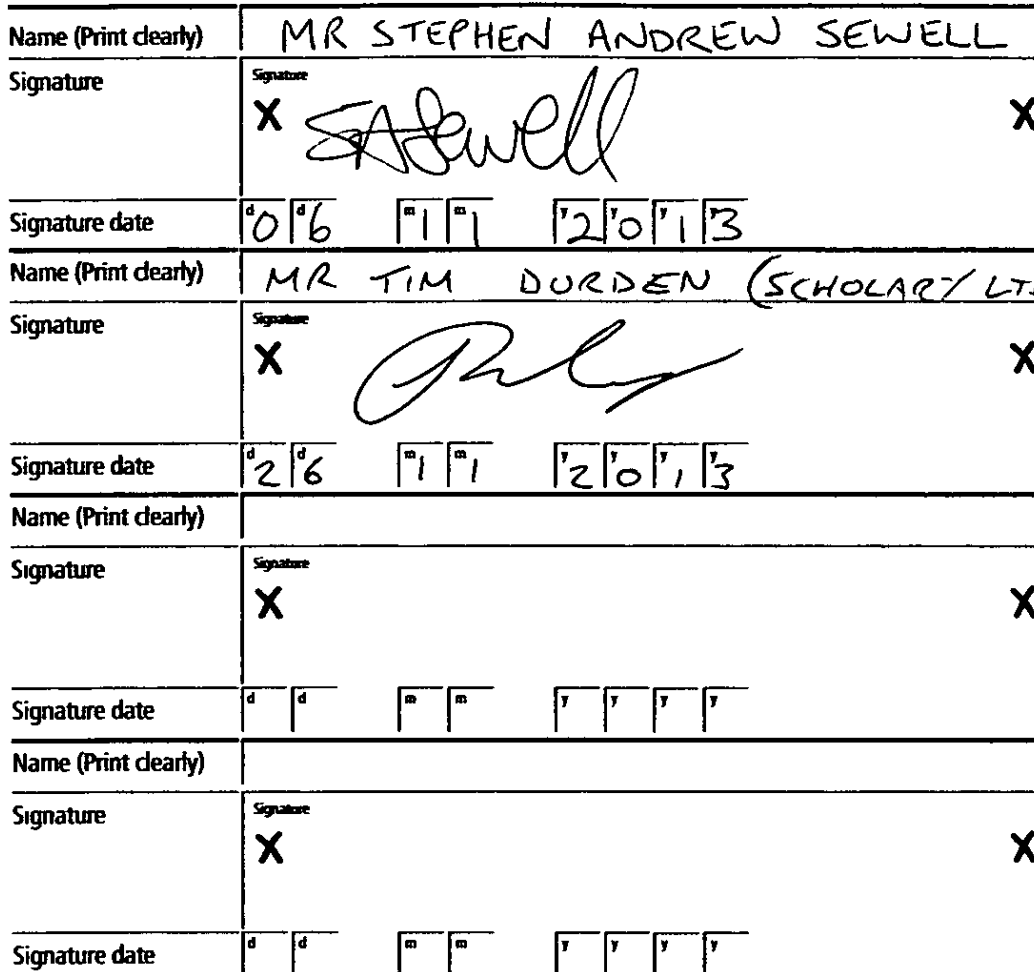 Name (Print clearly) MR STEPHEN ANDREW SEWELL
Signature Signature
X SASewell X
Signature date d0 d6 m1 m1 y2 y0 y1 y3
Name (Print clearly) MR TIM DURDEN (SCHOLARY LT
Signature Signature
X X
Signature date d2 d6 m1 m1 y2 y0 y1 y3
Name (Print clearly)
Signature Signature
X X
Signature date d d m m y y y y
Name (Print clearly)
Signature Signature
X X
Signature date d d m m y y y y